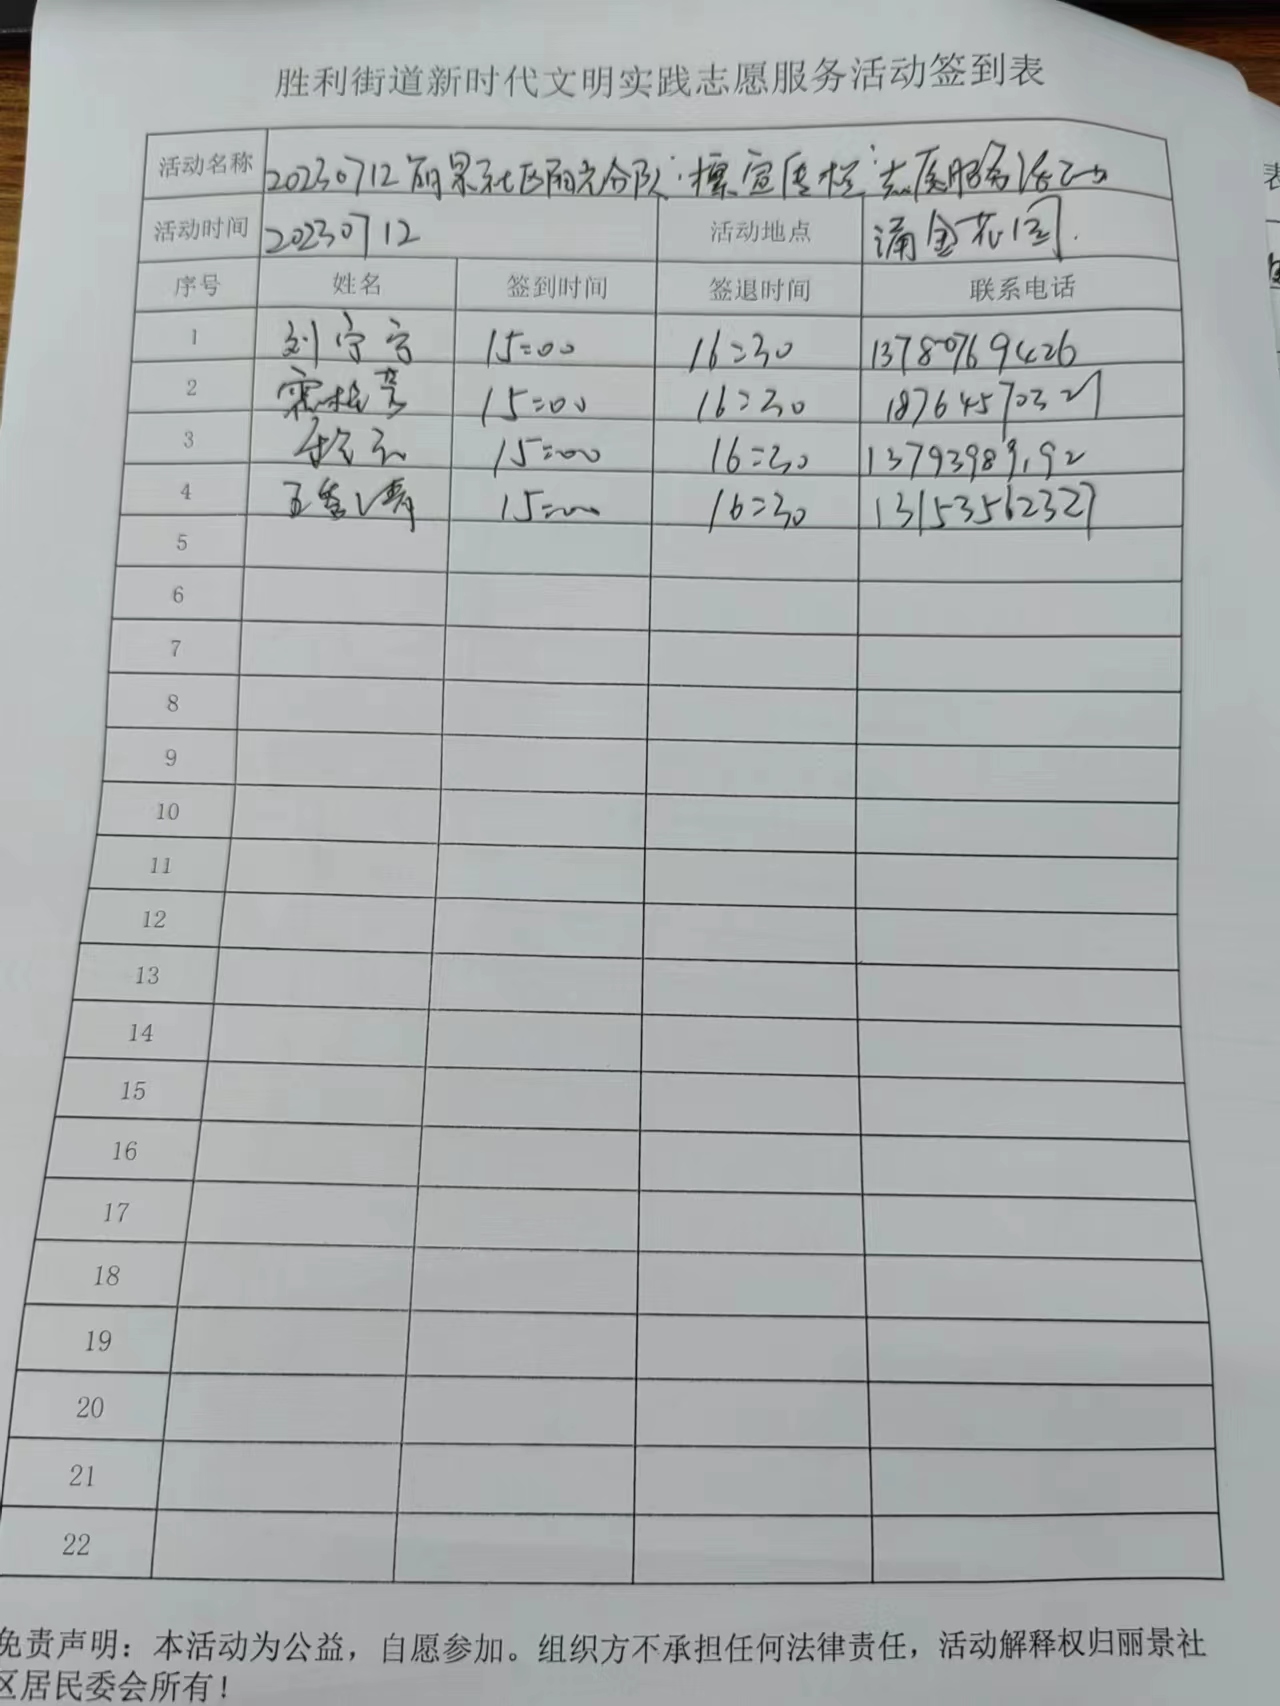 胜利街道新时代文明实践志愿服务活动签到表
活动名称 20230712丽景社区阳光分队"擦宣传栏"志愿服务活动
活动时间 20230712 活动地点 涌金花园.
序号 姓名 签到时间 签退时间 联系电话
1 刘宁宁 15:00 16:30 13780769426
2 15:00 16:30 18764570321
3 15:00 16:30 13793989192
4 15:00 16:30 13153562327
5
6
7
8
9
10
11
12
13
14
15
16
17
18
19
20
21
22
免责声明：本活动为公益，自愿参加。组织方不承担任何法律责任，活动解释权归丽景社
区居民委会所有！
表